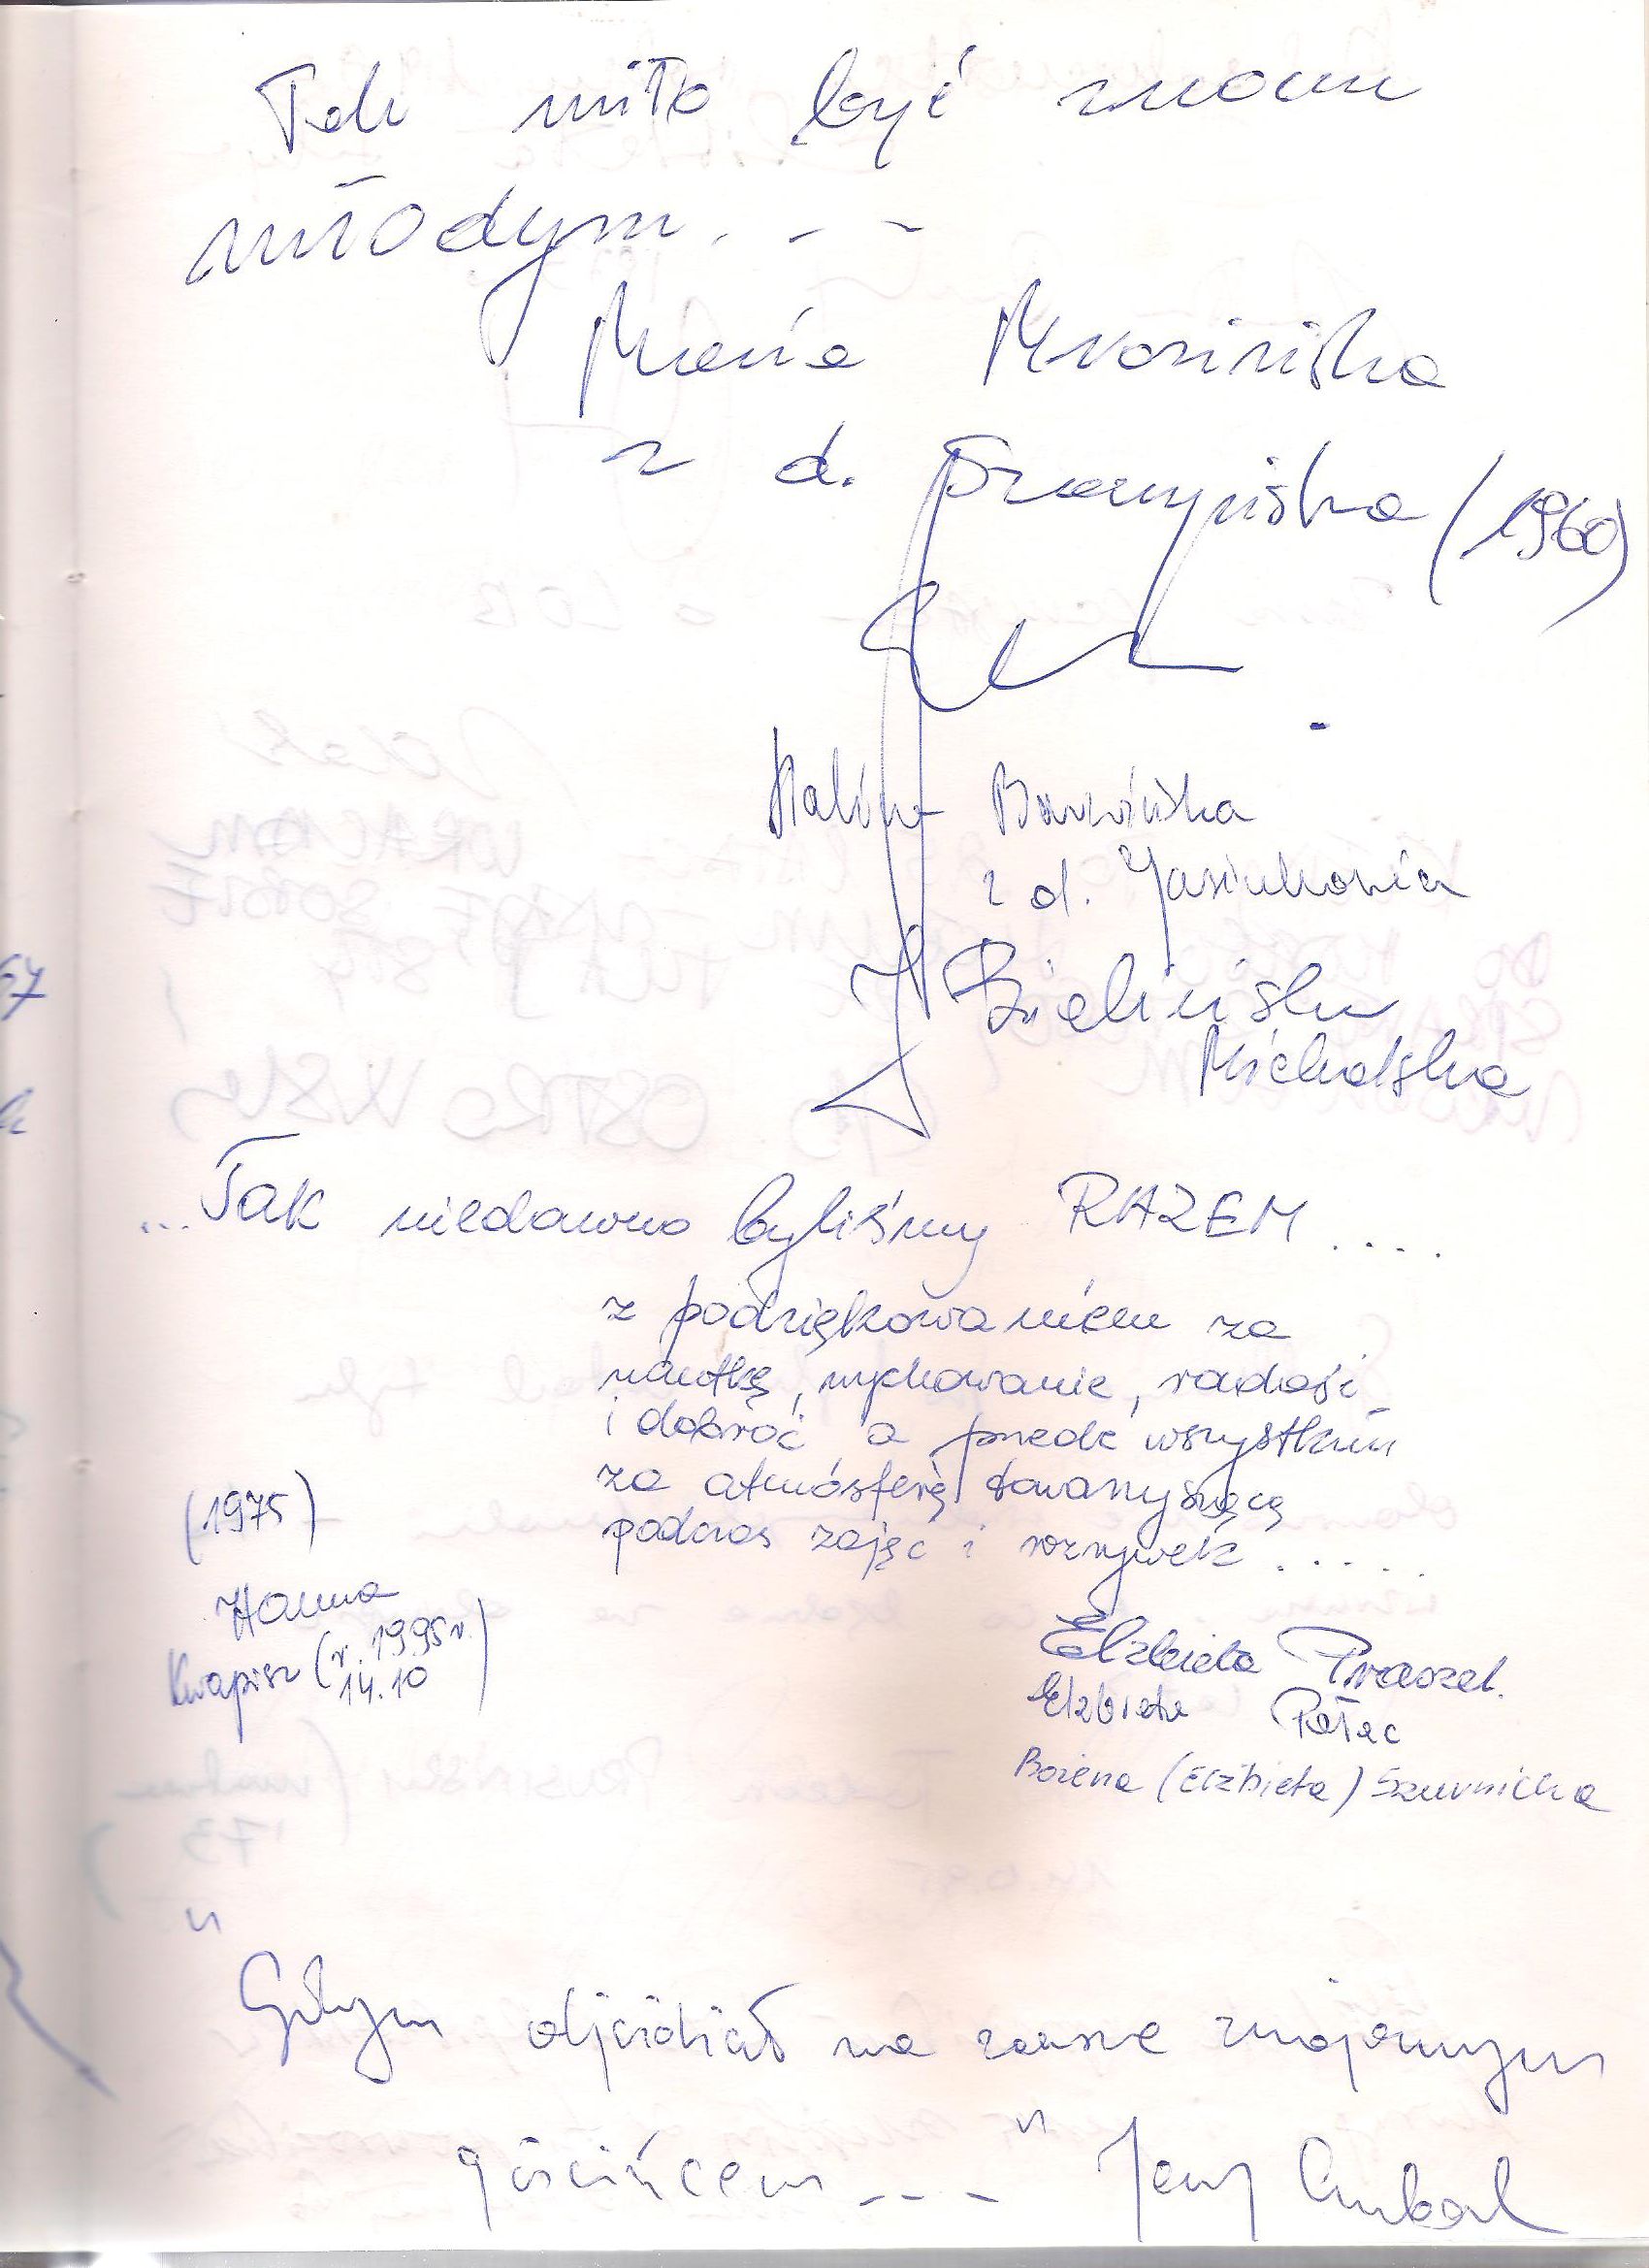 Tak miło być znowu
młodym...
Maria Mrozińska
z d. (1960)
Halina
z d.
Bielińska
Michalska
...Tak niedawno byliśmy RAZEM....
z podziękowaniem za
naukę, wychowanie, radość
i dobroć a przede wszystkim
za atmosferę towarzyszącą
podczas zajęć i rozrywek.....
(1975)
Hanna
Kwapisz (r. 1995r.
14.10)
Elżbieta Praszel.
Elżbieta Pałac
Bożena (Elżbieta)
"Gdym odjeżdżał na zawsze znajomym
gościńcem..." Jerzy